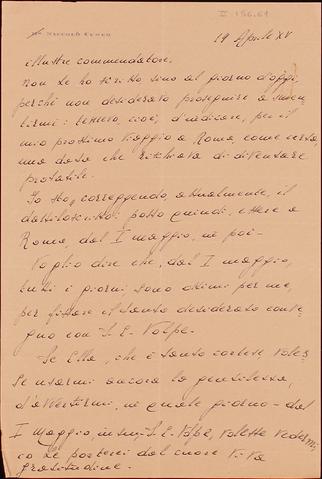 II 156.61
NICCOLÒ CUNEO
19 Aprile XV
illustre commendatore.
non Le ho scritto sino al giorno d'oggi,
perchè non desideravo proseguire a
: temevo, cioè, d'indicare, per il
mio prossimo viaggio a Roma, come certa,
una data che rischiava di diventare
probabile.
Io sto, correggendo, attualmente, il
dattiloscritto: posso quindi, essere a
Roma, dal I maggio, in poi.
Voglio dire che, dal I maggio,
tutti i giorni sono ottimi per me,
per fissare il tanto desiderato
con S. E. Volpe.
Se Ella, che è tanto cortese,
usarmi ancora la gentilezza,
d'avvertirmi, in quale giorno - dal
I Maggio, in su, - S. E. Volpe, volesse vedermi,
io Le porterei dal cuore viva
gratitudine.